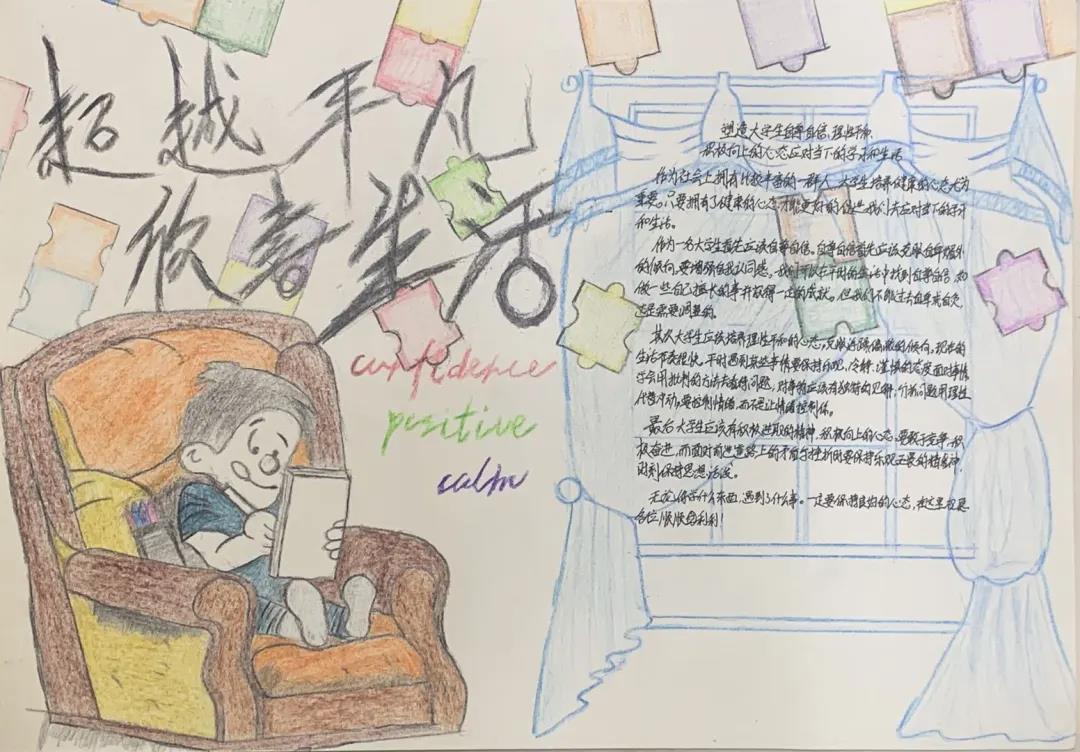 超越平凡
欣喜生活
confidence
positive
calm
塑造大学生自尊自信、理性平和、
积极向上的心态应对当下的学习和生活
作为社会上拥有比较丰富的一群人,大学生培养健康的心态尤为
重要。只要拥有了健康的心态,才能更好的促进我们去应对当下的学习
和生活。
作为一名大学生首先应该自尊自信。自尊自信首先应该克服自卑
的倾向,要增强自我认同感,我们可以在平时的生活中找到自尊自信,如
做一些自己擅长的事并获得一定的成就。但我们不能过去自卑或自负
这是需要调整的。
其次大学生应该培养理性平和的心态,克服过强偏激的倾向,现在的
生活节奏很快,平时遇到某些事情要保持乐观、冷静、谨慎的态度面对事情
学会用批判的方法去看待问题,对事物应该有独特的见解,分析问题用理性
代替冲动,要控制情绪,而不是让情绪控制你。
最后大学生应该有积极进取的精神,积极向上的心态,要敢于竞争,积
极奋进,而面对前进道路上的不顺与挫折则要保持乐观正景的精气神,
时刻保持思想活泼。
无论你学什么东西,遇到了什么事。一定要保持良好的心态,在这里祝愿
各位顺顺利利!